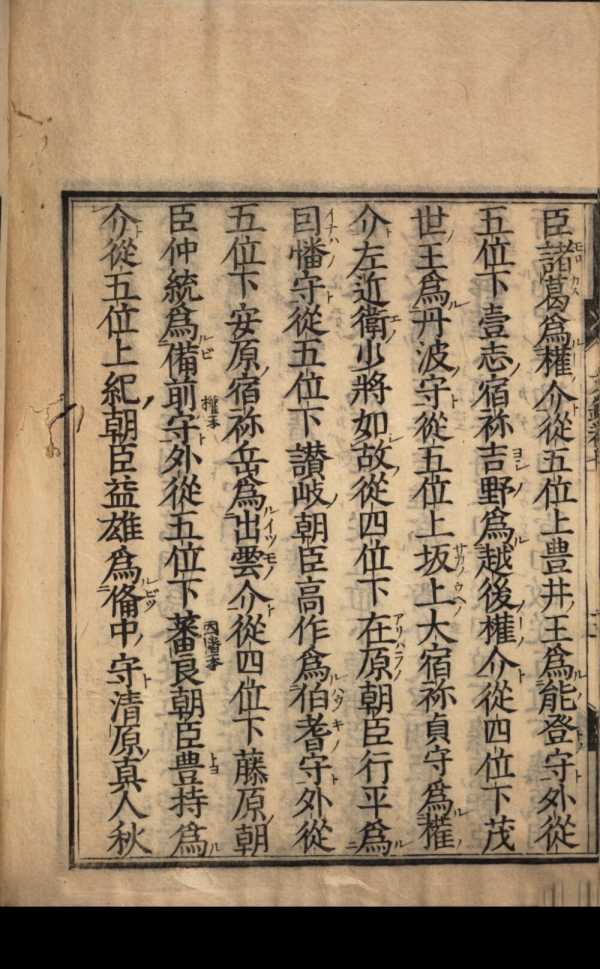 臣諸葛爲權介從五位上豊井王爲能登守外從
五位下壹志宿祢吉野爲越後權介從四位下茂
世王爲丹波守從五位上坂上大宿祢貞守爲權
介左近衛少將如故從四位下在原朝臣行平爲
因幡守從五位下讃岐朝臣高作爲伯耆守外從
五位下安原宿祢岳爲出雲介從四位下藤原朝
臣仲統爲備前守外從五位下蕃良朝臣豊持爲
介從五位上紀朝臣益雄爲備中守清原真人秋